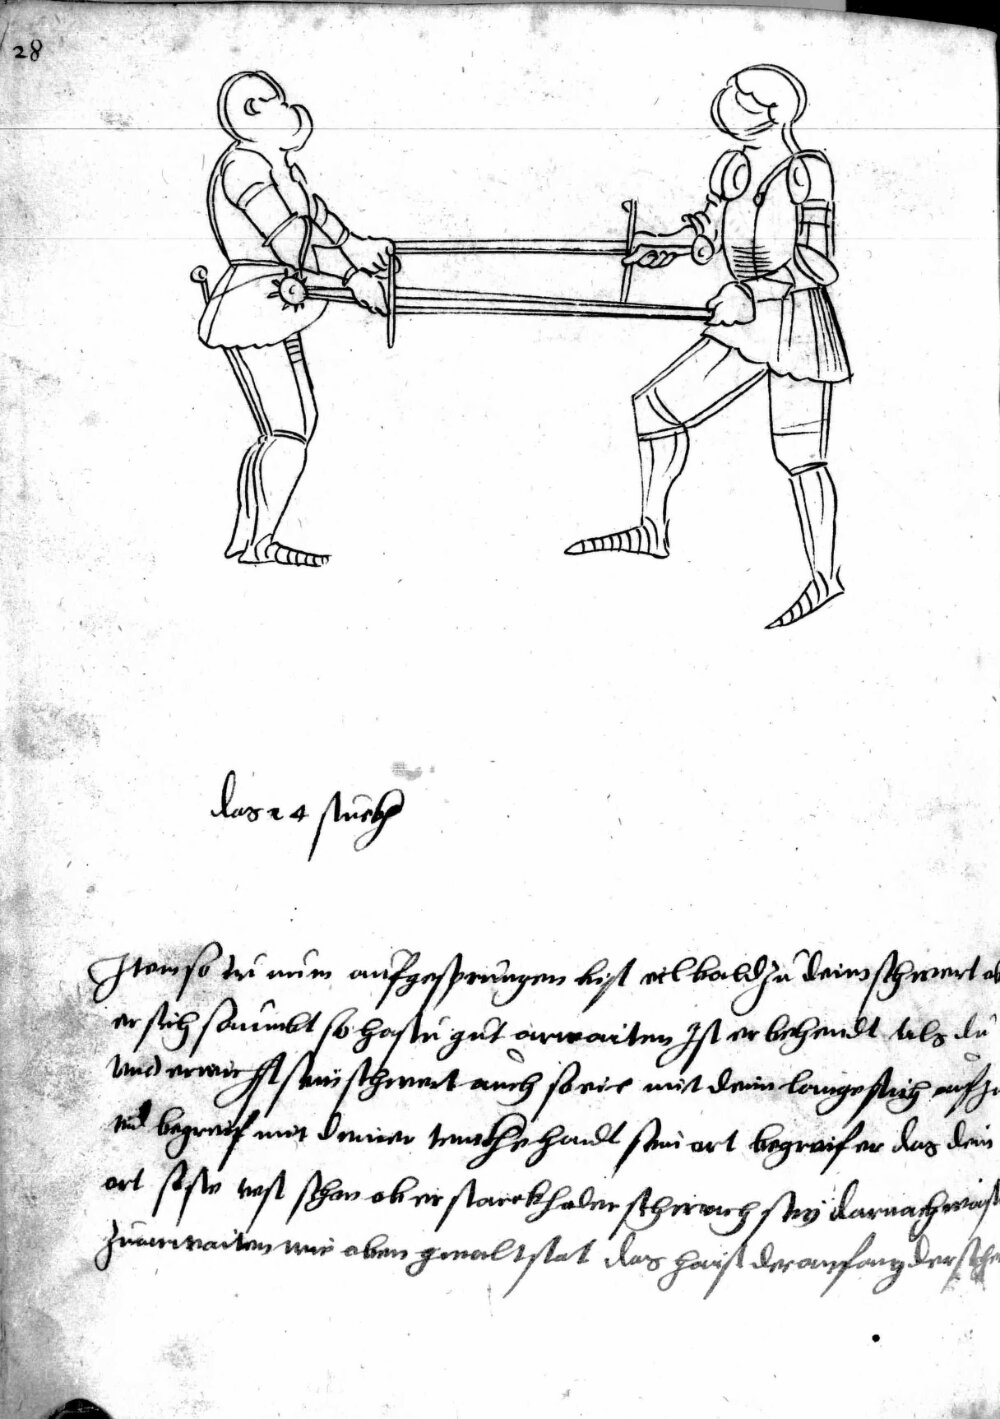 28
das 24 stuckh
Item so du nun aufgesprungen bist eil bald zu deim schwert ob
er sich saumbt so hastu gut arwaiten Ist er behendt als du
und erwischt sein schwert auch so eil mit deim langestich auf zu
und begreif mit deiner tenckhe handt sein ort begreif er das dein
ort so ste vest schau ob er starckh oder schwach sey darnach waist
zu arwaiten wie oben gmalt stat das haist der anfang der